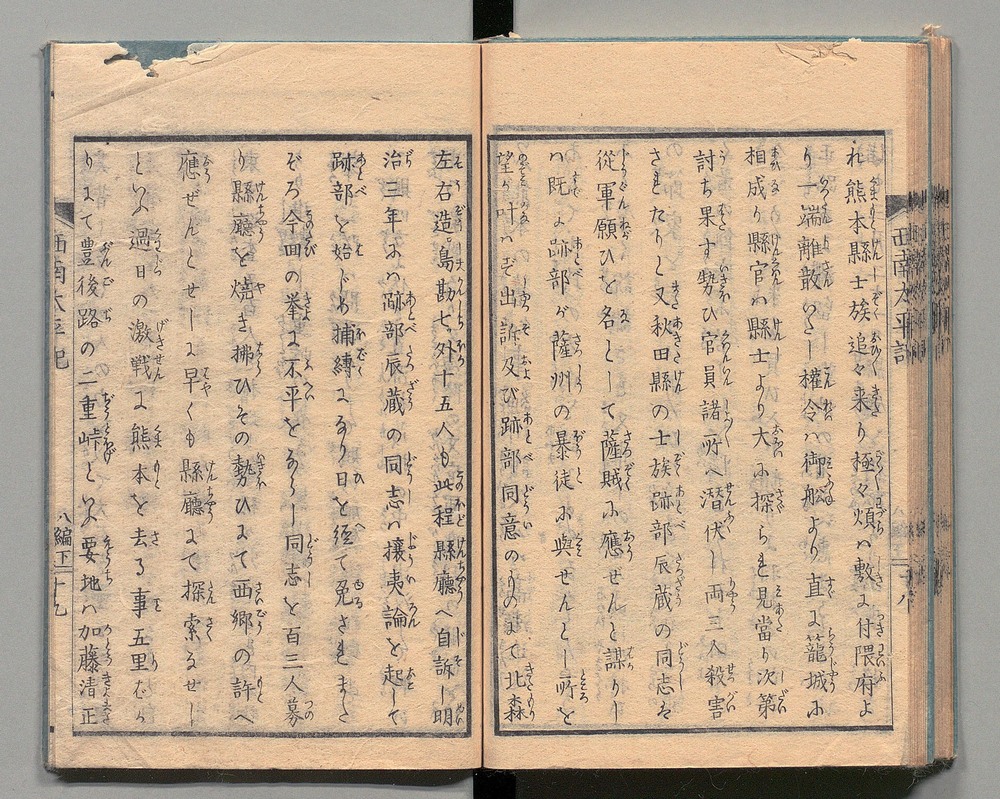 れ熊本縣士族追々来り極々煩ハ敷に付隈府よ
り一端離散いたし權令ハ御舩より直に籠城に
相成り縣官ハ縣士より大に探られ見當り次第
討ち果す勢ひ官員諸所へ潜伏し両三人殺害
されたりと又秋田縣の士族跡部辰蔵の同志は
從軍願ひを名として薩賊に應せんと謀りし
ハ既に跡部が薩州の暴徒に與せんとし所を
望み叶ハず出訴及び跡部同意のりのまて北森
左右造島勘七外十五人も此程縣廳へ自訴し明
治三年にハ跡部辰蔵の同志ハ攘夷論を起して
跡部を始じめ捕縛になり日を經て免されまた
ぞろ今回の挙に不平をならし同志を百三人募
り縣廳を焼き拂ひその勢ひにて西郷の許へ
應ぜんとせしに早くも縣廳にて探索なせし
といふ過日の激戦に熊本を去る事五里ばか
りにて豊後路の二重峠といふ要地ハ加藤清正
西南太平記
八編下
十九